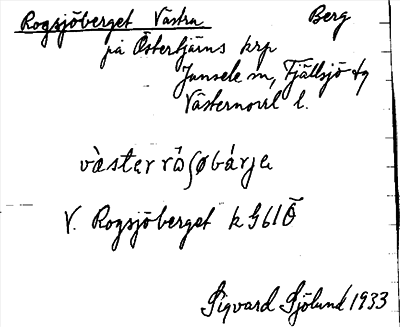 Rogsjöberget Västra Berg
på Östertjärns krp
Junsele sn, Fjällsjö tg
Västernorrl l.
vàstɛr rô̄ʃøbárjɛ
V. Rogsjöberget k 5610̃
Sigvard Sjölund 1933